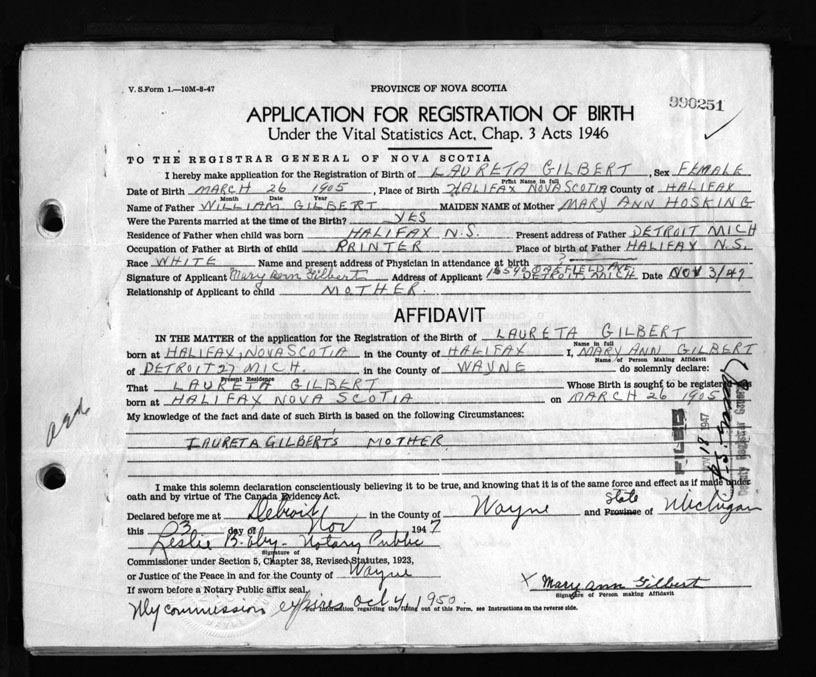 V. S. Form 1.—10M-8-47
PROVINCE OF NOVA SCOTIA
990251
APPLICATION FOR REGISTRATION OF BIRTH
Under the Vital Statistics Act, Chap. 3 Acts 1946
TO THE REGISTRAR GENERAL OF NOVA SCOTIA
I hereby make application for the Registration of Birth of LAURETA GILBERT, Sex FEMALE
Print Name in full
Date of Birth MARCH 26 1905, Place of Birth HALIFAX NOVA SCOTIA County of HALIFAX
Month Date Year
Name of Father WILLIAM GILBERT MAIDEN NAME of Mother MARY ANN HOSKING
Were the Parents married at the time of the Birth? YES
Residence of Father when child was born HALIFAX N.S. Present address of Father DETROIT MICH
Occupation of Father at Birth of child PRINTER Place of birth of Father HALIFAX N.S.
Race WHITE Name and present address of Physician in attendance at birth ?
Signature of Applicant Mary Ann Gilbert Address of Applicant DETROIT, MICH Date NOV 3/47
Relationship of Applicant to child MOTHER.
AFFIDAVIT
IN THE MATTER of the application for the Registration of the Birth of LAURETA GILBERT
Name in full
born at HALIFAX, NOVA SCOTIA in the County of HALIFAX I, MARY ANN GILBERT
Name of Person Making Affidavit
of DETROIT 27 MICH. in the County of WAYNE do solemnly declare:
Present Residence
That LAURETA GILBERT Whose Birth is sought to be registered was
born at HALIFAX NOVA SCOTIA on MARCH 26 1905
My knowledge of the fact and date of such Birth is based on the following Circumstances:
LAURETA GILBERT'S MOTHER
FILED
18 1947
Deputy Registrar General
I make this solemn declaration conscientiously believing it to be true, and knowing that it is of the same force and effect as if made under
oath and by virtue of The Canada Evidence Act.
Declared before me at Detroit in the County of Wayne and State Province of Michigan
this 3 day of Nov 1947
Leslie B. Notary Public
Signature of
Commissioner under Section 5, Chapter 38, Revised Statutes, 1923,
or Justice of the Peace in and for the County of Wayne
If sworn before a Notary Public affix seal,
X Mary Ann Gilbert
Signature of Person making Affidavit
My commission expires Oct 4, 1950
information regarding the filling out of this Form, see Instructions on the reverse side.